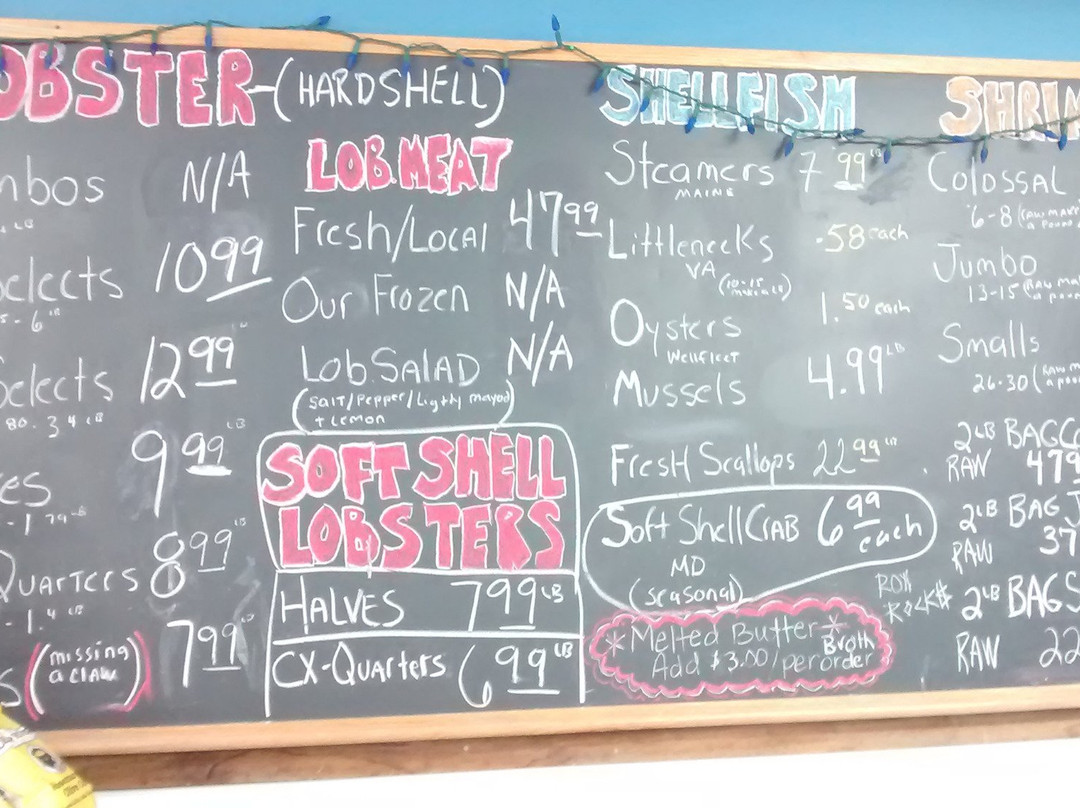 OBSTER-(HARDSHELL)
mbos N/A
LB
elects 10.99
5-6 LB
elects 12.99
80. 3 4 LB
es 9.99 LB
-1.79 LB
QUARTERS 8.99 LB
-1.4 LB
S (missing a claw) 7.99
LOB.MEAT
Fresh/Local 47.99
Our Frozen N/A
LOB.SALAD N/A
(salt/Pepper/Lightly mayod
+ Lemon)
SOFT SHELL
LOBSTERS
HALVES 7.99 LB
CX-Quarters 6.99 LB
SHELLFISH
Steamers 7.99 LB
MAINE
Littlenecks .58 each
VA
Oysters 1.50 each
Wellfleet
Mussels 4.99 LB
Fresh Scallops 22.99 LB
Soft Shell CRAB 6.99 each
MD
(seasonal)
*Melted Butter* Broth
Add $3.00/per order
SHRIM
Colossal
6-8 (raw make
a pound
Jumbo
13-15 (Raw ma
a poun
Smalls
26-30 (Raw m
a poun
2LB BAG C
RAW 479
2LB BAG J
RAW 37
2LB BAG S
RAW 22